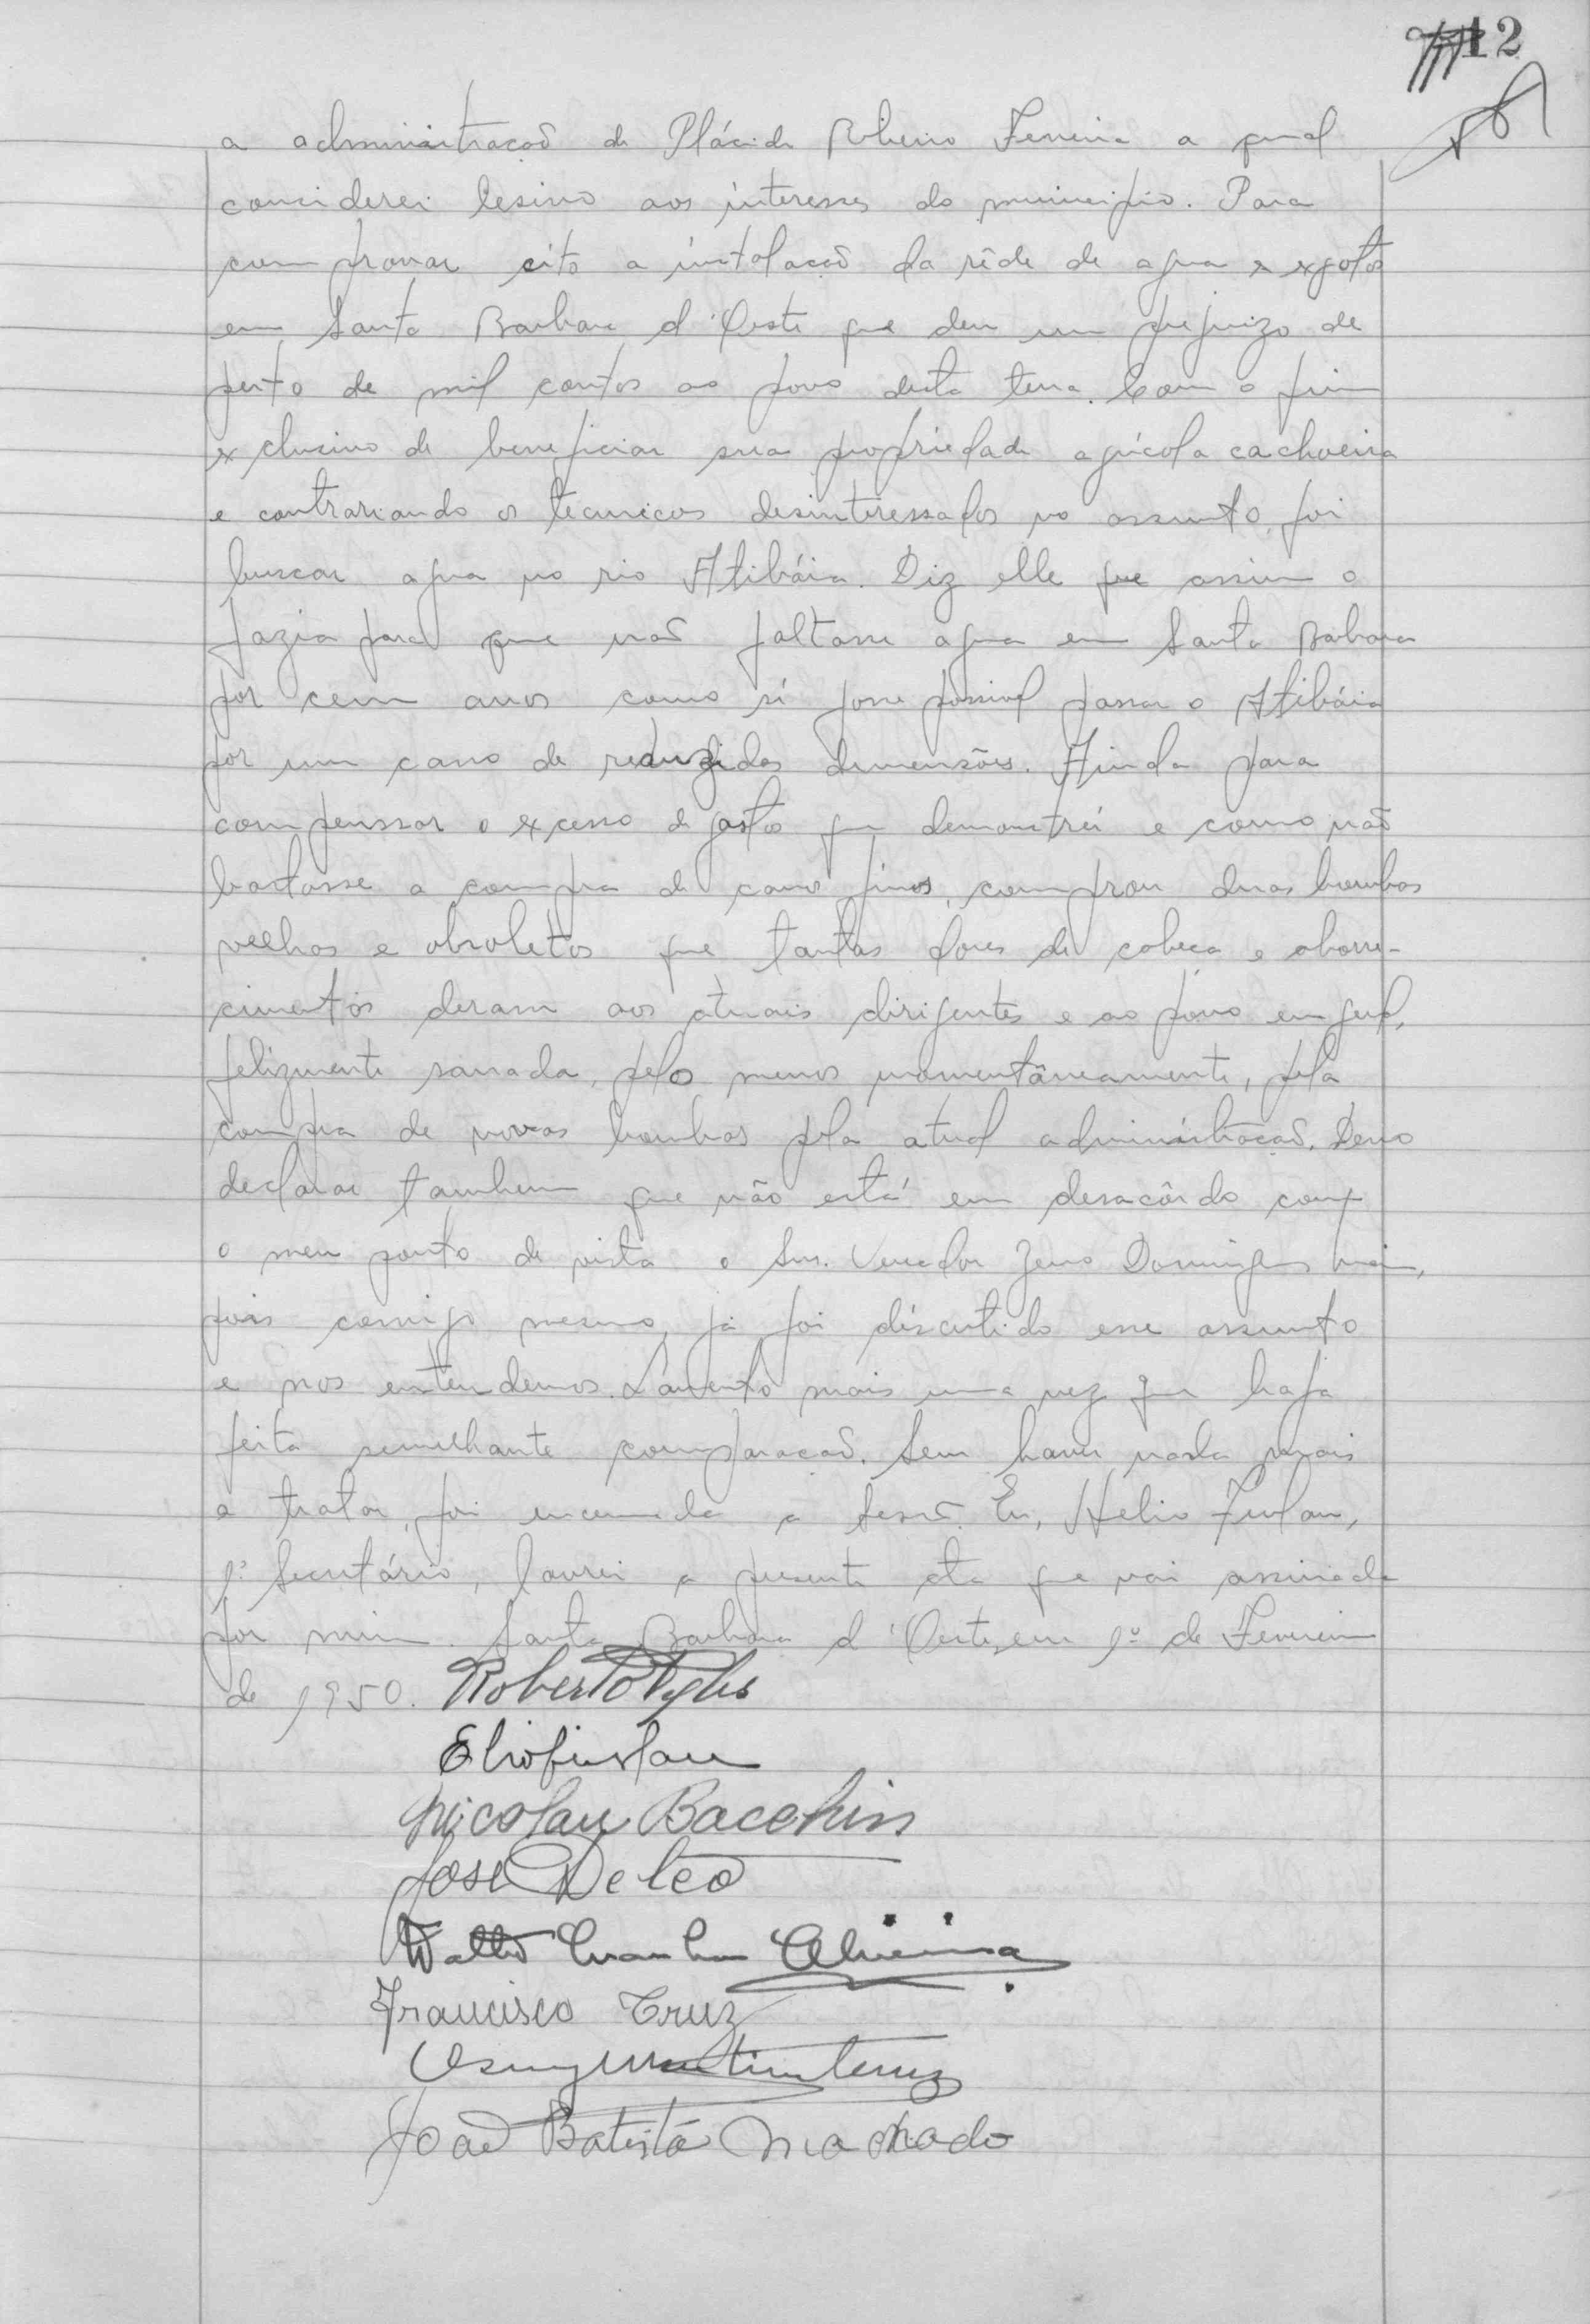 12
a administração de Plácido Ribeiro Ferreira a qual
conciderei lesivo aos interesses do municipio. Para
comprovar cito a instalação da rêde de agua e exgotos
em Santa Barbara d'Oeste que deu um prejuizo de
perto de mil contos ao povo desta terra. Com o fim
exclusivo de beneficiar sua propriedade agrícola cachoeira
e contrariando os tecnicos desinteressados no assunto, foi
buscar agua no rio Atibáia. Diz elle que assim o
fazia para que não faltasse agua em Santa Barbara
por cem anos como si fosse possivel passar o Atibáia
por um cano de reduzidas dimensões. Ainda para
compenssar o excesso de gastos que demonstrei e como não
bastasse a compra de canos finos, comprou duas bombas
velhas e obsoletos que tantas dores de cabeca e aborre-
cimentos deram aos atuais dirigentes e ao povo em geral,
felizmente sanada, pelo menos momentâneamente, pela
compra de novas bombas pela atual administração. Devo
declarar tambem que não está em desacôrdo com
o meu ponto de vista o Snr. Vereador Zeno Domingues Maia,
pois comigo mesmo, já foi discutido esse assunto
e nos entendemos. Lamento mais uma vez que haja
feita semelhante comparação. Sem haver nada mais
a tratar, foi encerrada a Sessão. Eu, Helio Furlan,
1º Secretário, lavrei a presente ata que vai assinada
por mim. Santa Barbara d'Oeste, em 1º de Fevereiro
de 1950. Roberto
Elio Furlan
Nicolau Bacchin
José Deleo
Walter Oliveira
Francisco Cruz
João Batista Machado